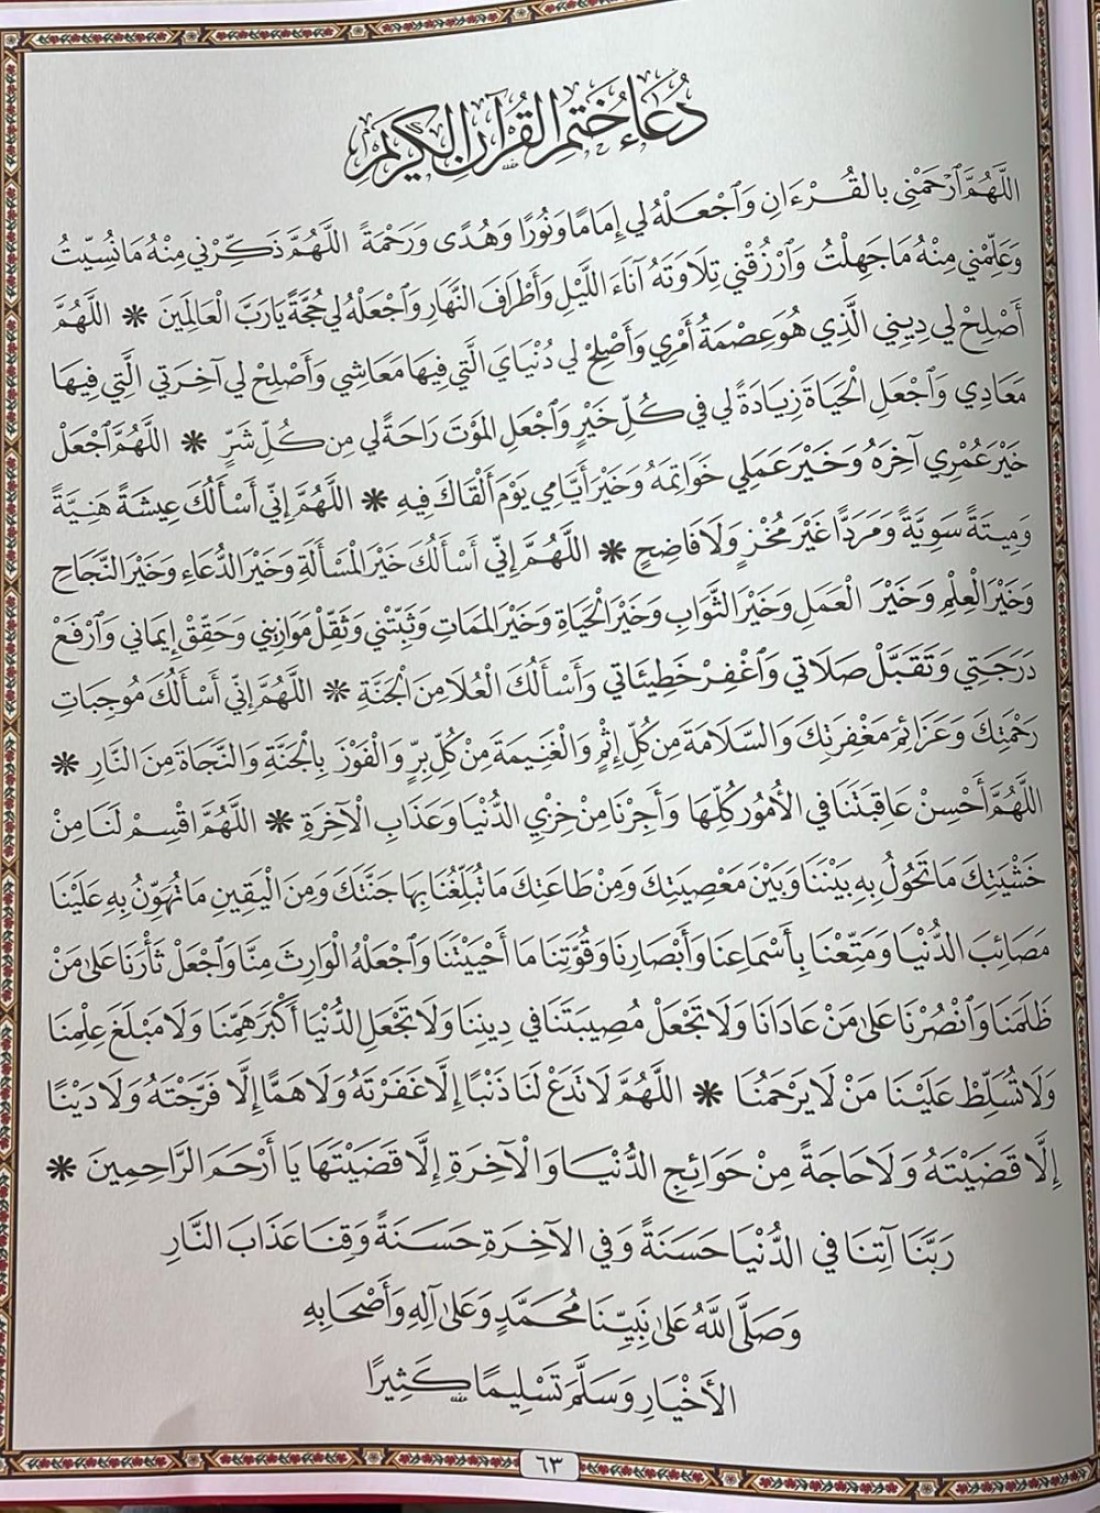 دُعَاءُ خَتْمِ الْقُرْآنِ الْكَرِيمِ
اللَّهُمَّ ٱرْحَمْنِي بِالقُرْءَانِ وَٱجْعَلْهُ لِي إِمَامًا وَنُورًا وَهُدًى وَرَحْمَةً اللَّهُمَّ ذَكِّرْنِي مِنْهُ مَا نُسِّيتُ
وَعَلِّمْنِي مِنْهُ مَا جَهِلْتُ وَٱرْزُقْنِي تِلَاوَتَهُ آنَاءَ اللَّيْلِ وَأَطْرَافَ النَّهَارِ وَٱجْعَلْهُ لِي حُجَّةً يَارَبَّ الْعَالَمِينَ * اللَّهُمَّ
أَصْلِحْ لِي دِينِي الَّذِي هُوَ عِصْمَةُ أَمْرِي وَأَصْلِحْ لِي دُنْيَايَ الَّتِي فِيهَا مَعَاشِي وَأَصْلِحْ لِي آخِرَتِي الَّتِي فِيهَا
مَعَادِي وَٱجْعَلِ الْحَيَاةَ زِيَادَةً لِي فِي كُلِّ خَيْرٍ وَٱجْعَلِ المَوْتَ رَاحَةً لِي مِن كُلِّ شَرٍّ * اللَّهُمَّ ٱجْعَلْ
خَيْرَ عُمْرِي آخِرَهُ وَخَيْرَ عَمَلِي خَوَاتِمَهُ وَخَيْرَ أَيَّامِي يَوْمَ أَلْقَاكَ فِيهِ * اللَّهُمَّ إِنِّي أَسْأَلُكَ عِيشَةً هَنِيَّةً
وَمِيتَةً سَوِيَّةً وَمَرَدًّا غَيْرَ مُخْزٍ وَلَا فَاضِحٍ * اللَّهُمَّ إِنِّي أَسْأَلُكَ خَيْرَ المَسْأَلَةِ وَخَيْرَ الدُّعَاءِ وَخَيْرَ النَّجَاحِ
وَخَيْرَ الْعِلْمِ وَخَيْرَ الْعَمَلِ وَخَيْرَ الثَّوَابِ وَخَيْرَ الْحَيَاةِ وَخَيْرَ المَمَاتِ وَثَبِّتْنِي وَثَقِّلْ مَوَازِينِي وَحَقِّقْ إِيمَانِي وَٱرْفَعْ
دَرَجَتِي وَتَقَبَّلْ صَلَاتِي وَٱغْفِرْ خَطِيئَاتِي وَأَسْأَلُكَ الْعُلَا مِنَ الْجَنَّةِ * اللَّهُمَّ إِنِّي أَسْأَلُكَ مُوجِبَاتِ
رَحْمَتِكَ وَعَزَائِمَ مَغْفِرَتِكَ وَالسَّلَامَةَ مِن كُلِّ إِثْمٍ وَالْغَنِيمَةَ مِنْ كُلِّ بِرٍّ وَالْفَوْزَ بِالْجَنَّةِ وَالنَّجَاةَ مِنَ النَّارِ *
اللَّهُمَّ أَحْسِنْ عَاقِبَتَنَا فِي الأُمُورِ كُلِّهَا وَأَجِرْنَا مِنْ خِزْيِ الدُّنْيَا وَعَذَابِ الْآخِرَةِ * اللَّهُمَّ اقْسِمْ لَنَا مِنْ
خَشْيَتِكَ مَا تَحُولُ بِهِ بَيْنَنَا وَبَيْنَ مَعْصِيَتِكَ وَمِنْ طَاعَتِكَ مَا تُبَلِّغُنَا بِهَا جَنَّتَكَ وَمِنَ الْيَقِينِ مَا تُهَوِّنُ بِهِ عَلَيْنَا
مَصَائِبَ الدُّنْيَا وَمَتِّعْنَا بِأَسْمَاعِنَا وَأَبْصَارِنَا وَقُوَّتِنَا مَا أَحْيَيْتَنَا وَٱجْعَلْهُ الْوَارِثَ مِنَّا وَٱجْعَلْ ثَأْرَنَا عَلَى مَنْ
ظَلَمَنَا وَٱنْصُرْنَا عَلَى مَنْ عَادَانَا وَلَا تَجْعَلْ مُصِيبَتَنَا فِي دِينِنَا وَلَا تَجْعَلِ الدُّنْيَا أَكْبَرَ هَمِّنَا وَلَا مَبْلَغَ عِلْمِنَا
وَلَا تُسَلِّطْ عَلَيْنَا مَنْ لَا يَرْحَمُنَا * اللَّهُمَّ لَا تَدَعْ لَنَا ذَنْبًا إِلَّا غَفَرْتَهُ وَلَا هَمًّا إِلَّا فَرَّجْتَهُ وَلَا دَيْنًا
إِلَّا قَضَيْتَهُ وَلَا حَاجَةً مِنْ حَوَائِجِ الدُّنْيَا وَالْآخِرَةِ إِلَّا قَضَيْتَهَا يَا أَرْحَمَ الرَّاحِمِينَ *
رَبَّنَا آتِنَا فِي الدُّنْيَا حَسَنَةً وَفِي الآخِرَةِ حَسَنَةً وَقِنَا عَذَابَ النَّارِ
وَصَلَّى اللَّهُ عَلَى نَبِيِّنَا مُحَمَّدٍ وَعَلَى آلِهِ وَأَصْحَابِهِ
الأَخْيَارِ وَسَلَّمَ تَسْلِيمًا كَثِيرًا
٦٣